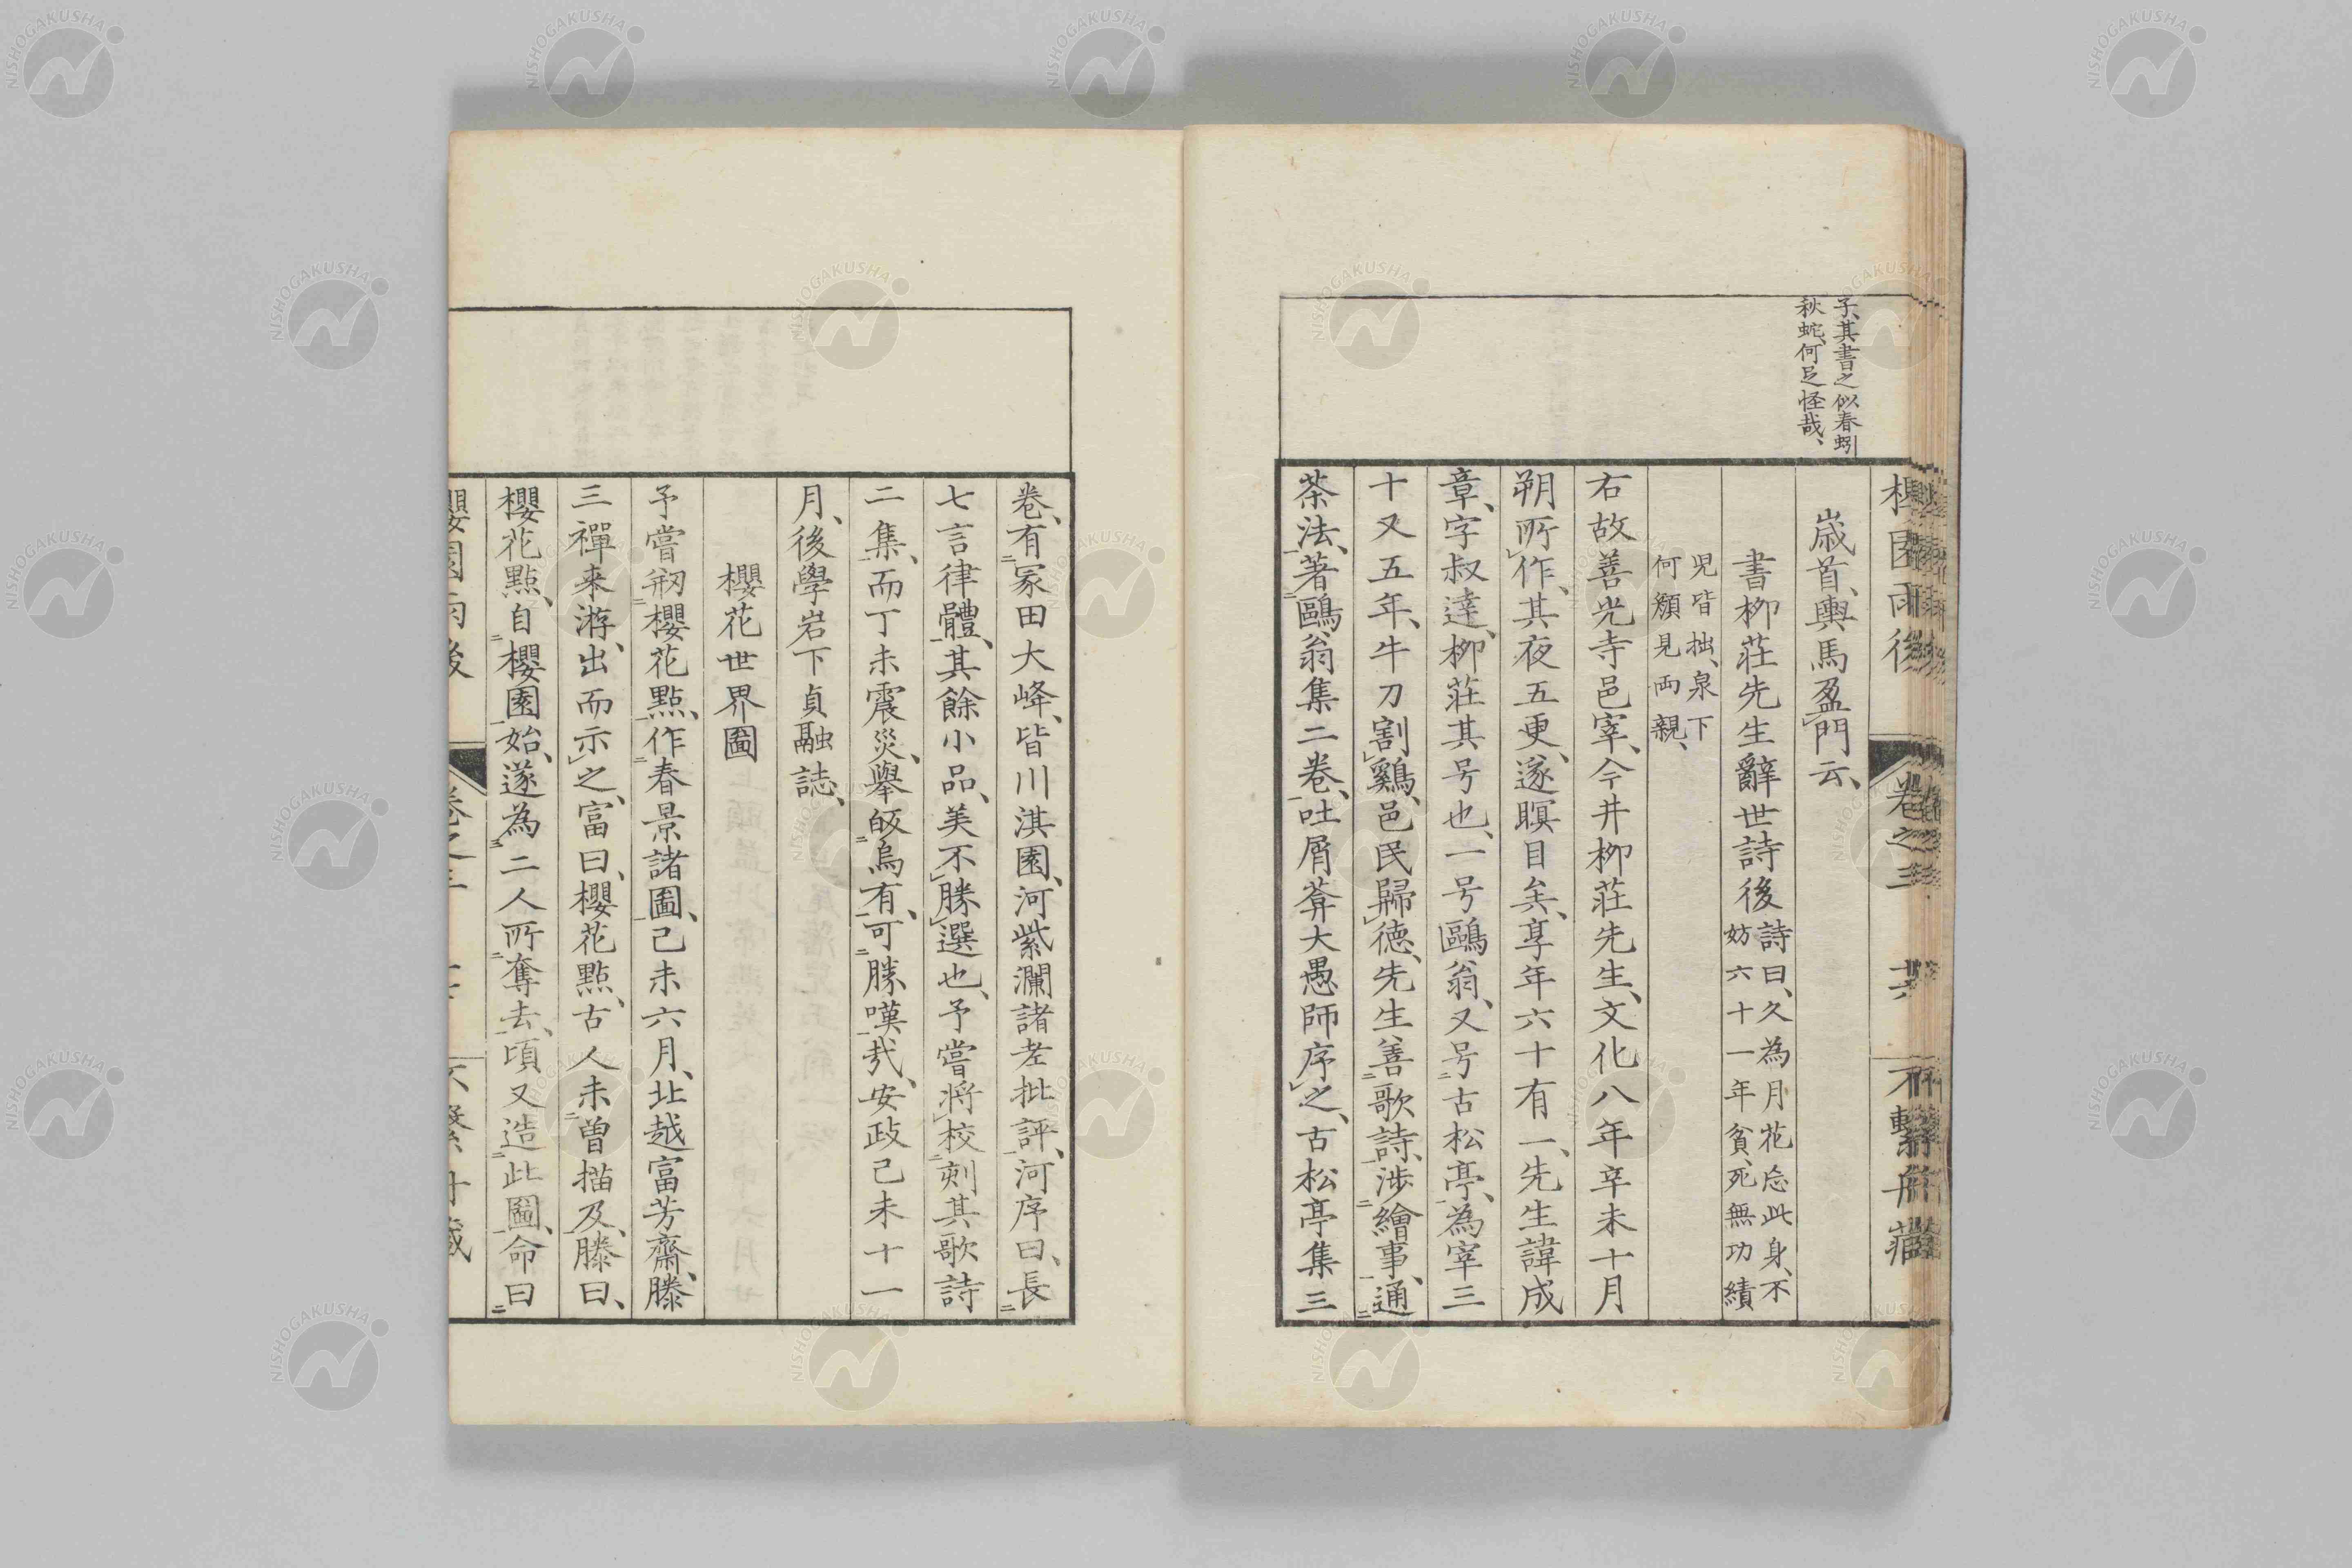 子、其書之似春蚓
秋蛇、何足怪哉、
歳首、輿馬盈門云、
書柳荘先生辭世詩後
詩曰、久為月花忘此身、不
妨六十一年貧、死無功績
児皆拙、泉下
何顔見両親、
右故善光寺邑宰、今井柳荘先生、文化八年辛未十月
朔所作、其夜五更、遂瞑目矣、享年六十有一、先生諱成
章、字叔達、柳荘其号也、一号鷗翁、又号古松亭、為宰三
十又五年、牛刀割鷄、邑民歸徳、先生善歌詩、渉繪事、通
茶法、著鷗翁集二卷、吐屑葊大愚師序之、古松亭集三
卷、有冢田大峰、皆川淇園、河紫瀾諸老批評、河序曰、長
七言律體、其餘小品、美不勝選也、予嘗将校刻其歌詩
二集、而丁未震災、舉皈烏有、可勝嘆哉、安政己未十一
月、後學岩下貞融誌、
櫻花世界圖
予嘗剏櫻花點、作春景諸圖、己未六月、北越富芳齋、滕
三禪来游、出而示之、富曰、櫻花點、古人未曽描及、滕曰、
櫻花點、自櫻園始、遂為二人所奪去、頃又造此圖、命曰
櫻園雨後 卷之三 不繋舟藏
NISHOGAKUSHA